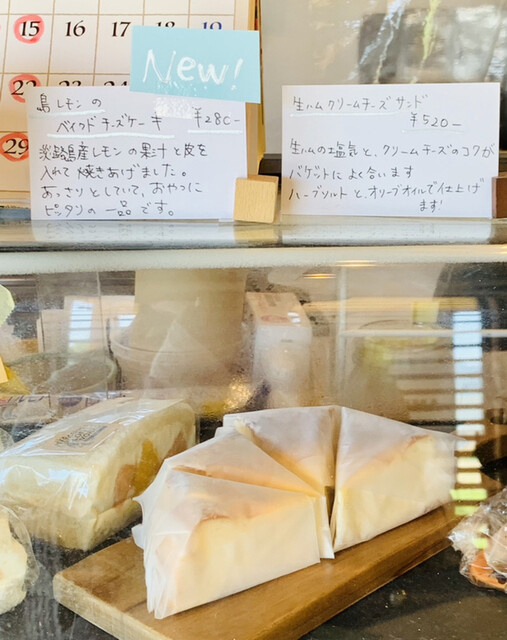 15 16 17 18 19
22
29
New!
島レモンの
ベイクドチーズケーキ ¥280-
淡路島産レモンの果汁と皮を
入れて焼きあげました。
あっさりとしていて、おやつに
ピッタリの一品です。
生ハムクリームチーズサンド
¥520-
生ハムの塩気と、クリームチーズのコクが
バゲットによく合います
ハーブソルトと、オリーブオイルで仕上げ
ます!